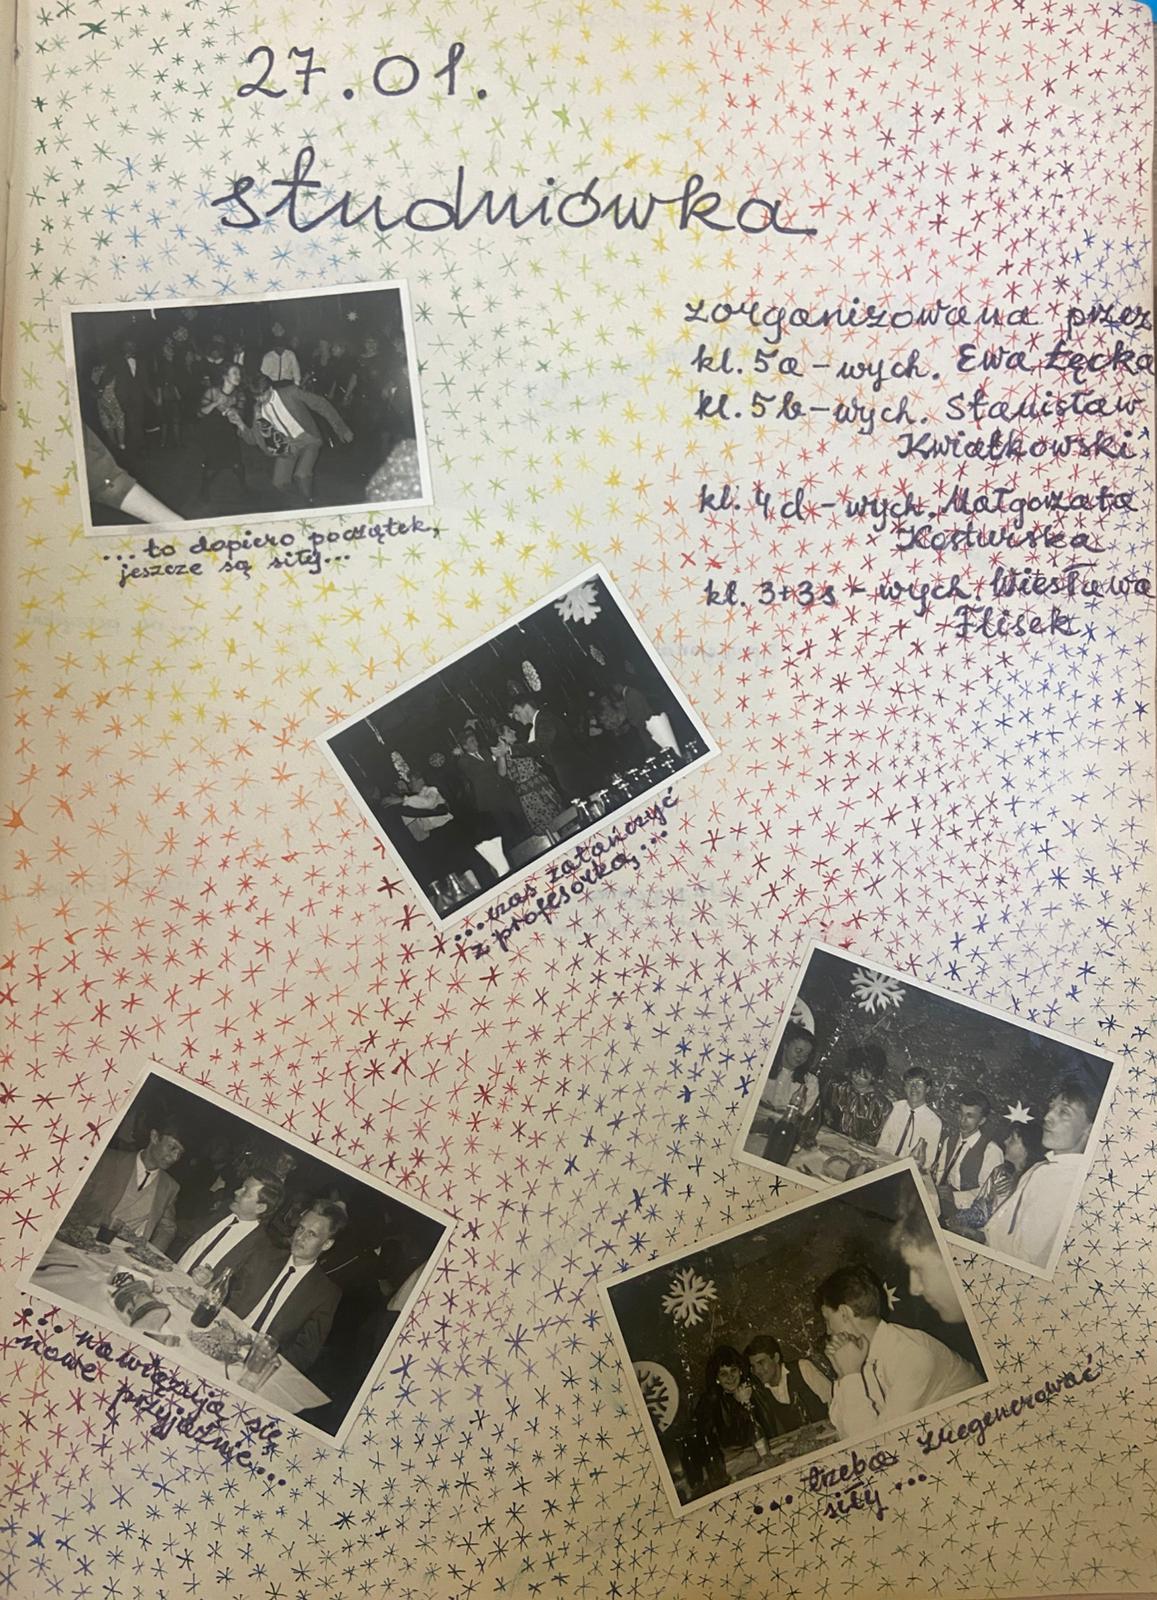 27.01.
studniówka
zorganizowana przez
kl. 5a - wych. Ewa Łęcka
kl. 5b - wych. Stanisław
Kwiatkowski
kl. 4d - wych. Małgorzata
Kosturska
kl. 3+3s - wych. Wiesława
Flisek
...to dopiero początek,
jeszcze są siły...
...czas zatańczyć
z profesorką,...
...nawiązują się
nowe przyjaźnie...
...trzeba zregenerować
siły...